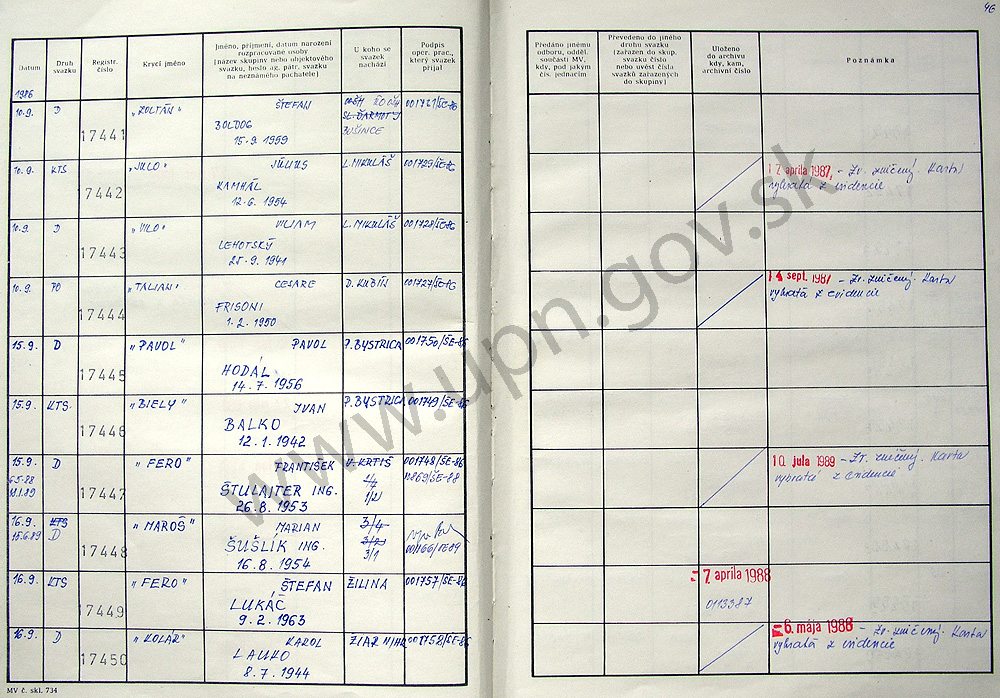 46
Datum
Druh
svazku
Registr.
číslo
Krycí jméno
Jméno, příjmení, datum narození
rozpracované osoby
(název skupiny nebo objektového
svazku, heslo ag. pátr. svazku
na neznámého pachatele)
U koho se
svazek
nachází
Podpis
oper. prac.,
který svazek
přijal
Předáno jinému
odboru, odděl.
součásti MV,
kdy, pod jakým
čís. jednacím
Převedeno do jiného
druhu svazku
(zařazen do skup.
svazku číslo
nebo uvést čísla
svazků zařazených
do skupiny)
Uloženo
do archivu
kdy, kam,
archivní číslo
Poznámka
1986
10.9. D 17441 „ZOLTÁN" ŠTEFAN 001721/ŠE-86
SL. ĎARMOTY
BOLDOG BUŠINCE
15.9. 1959
10.9. KTS 7442 „JULO" JÚLIUS L. MIKULÁŠ 001729/ŠE-86
KAMHÁL
12.6. 1954
12 apríla 1987, - Zv. zničený. Karta
vybratá z evidencie
10.9. D 17443 „VILO" VILIAM L. MIKULÁŠ 001728/ŠE-86
LEHOTSKÝ
25.9. 1941
10.9. PO 17444 „TALIAN" CESARE D. KUBÍN 001727/ŠE-86
FRISONI
1.2. 1950
14 sept. 1987 - Zv. zničený. Karta
vybratá z evidencie
15.9. D 17445 „PAVOL" PAVOL P. BYSTRICA 001750/ŠE-86
HODÁL
14.7. 1956
15.9. KTS 17446 „BIELY" IVAN P. BYSTRICA 001749/ŠE-86
BALKO
12.1. 1942
15.9. D 17447 „FERO" FRANTIŠEK V. KRTÍŠ 001748/ŠE-86
6.5-88 ŠTULAJTER ING. 1/2
26.8. 1953
10 júla 1989 - Zv. zničený. Karta
vybratá z evidencie
16.9. KTS 17448 „MAROŠ" MARIAN 3/4
15.6.89 D ŠUŠLÍK ING. 3/2
16.8. 1954 3/1
16.9. KTS 17449 „FERO" ŠTEFAN ŽILINA 001757/ŠE-86
LUKÁČ
9.2. 1963
- 7 apríla 1988
0113387
16.9. D 17450 „KOLÁR" KAROL ŽIAR N/HR 001758/ŠE-86
LAUKO
8.7. 1944
- 6. mája 1988 - Zv. zničený. Karta
vybratá z evidencie
MV č. skl. 734
www.upn.gov.sk